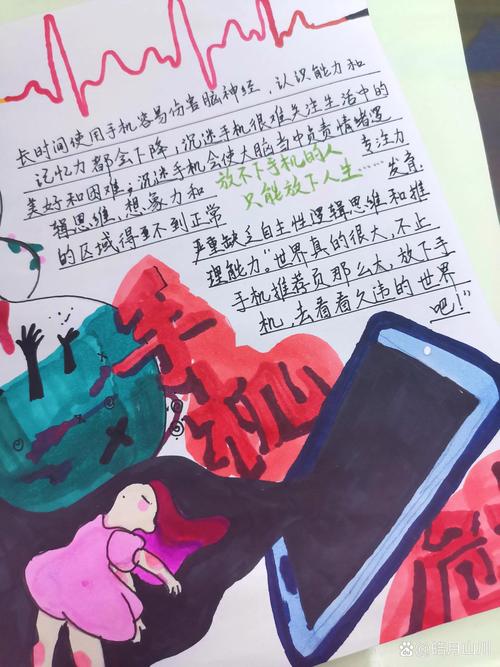 长时间使用手机容易伤害脑神经，认识能力和
记忆力都会下降，沉迷手机很难关注生活中的
美好和困难，沉迷手机会使大脑当中负责情绪逻
辑思维，想象力和
放不下手机的人
只能放下人生……
专注力
的区域得不到正常
发育
严重缺乏自主性逻辑思维和推
理能力。"世界真的很大，不止
手机推荐页那么大，放下手
机，去看看久违的世界
吧！"
手机
危
百家号/皓月山川